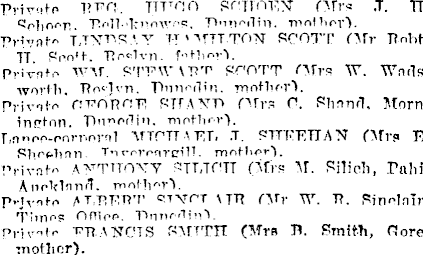 Private REG. HUGO SCHOEN (Mrs J. H
Schoen, Belleknowes, Dunedin, mother).
Private LINDSAY HAMILTON SCOTT (Mr Robt
H. Scott, Roslyn, father).
Private WM. STEWART SCOTT (Mrs W. Wads
worth, Roslyn, Dunedin, mother).
Private GEORGE SHAND (Mrs C. Shand, Morn
ington, Dunedin, mother).
Lance-corporal MICHAEL J. SHEEHAN (Mrs E
Sheehan, Invercargill, mother).
Private ANTHONY SILICH (Mrs M. Silich, Pahi
Auckland, mother).
Private ALBERT SINCLAIR (Mr W. R. Sinclair
Times Office, Dunedin).
Private FRANCIS SMITH (Mrs B. Smith, Gore
mother).